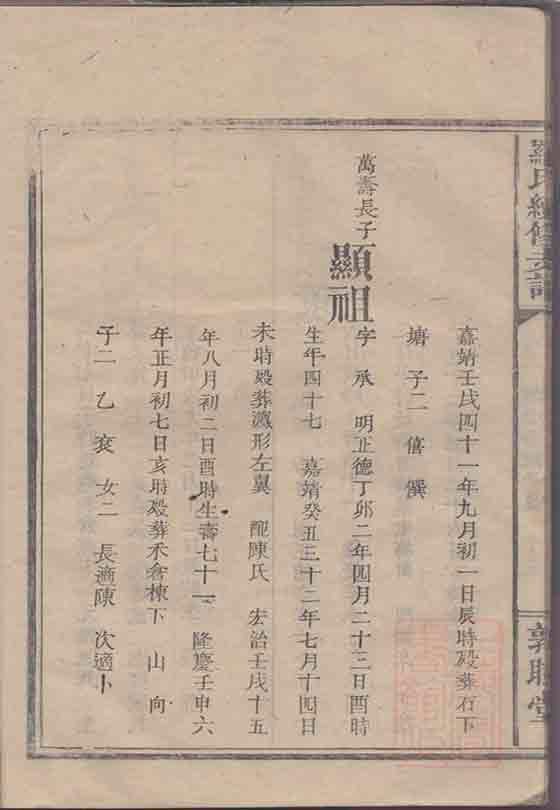 羅氏續修支譜
敦睦堂
嘉靖壬戌四十一年九月初一日辰時歿葬石下
塘子二僖僎
萬壽長子
顯祖
字承 明正德丁卯二年四月二十三日酉時
生年四十七 嘉靖癸丑三十二年七月十四日
未時歿葬瀛形左翼 配陳氏 宏治壬戌十五
年八月初二日酉時生壽七十一 隆慶壬申六
年正月初七日亥時歿葬禾倉棟下 山 向
子二 乙 亥 女二 長適陳 次適卜